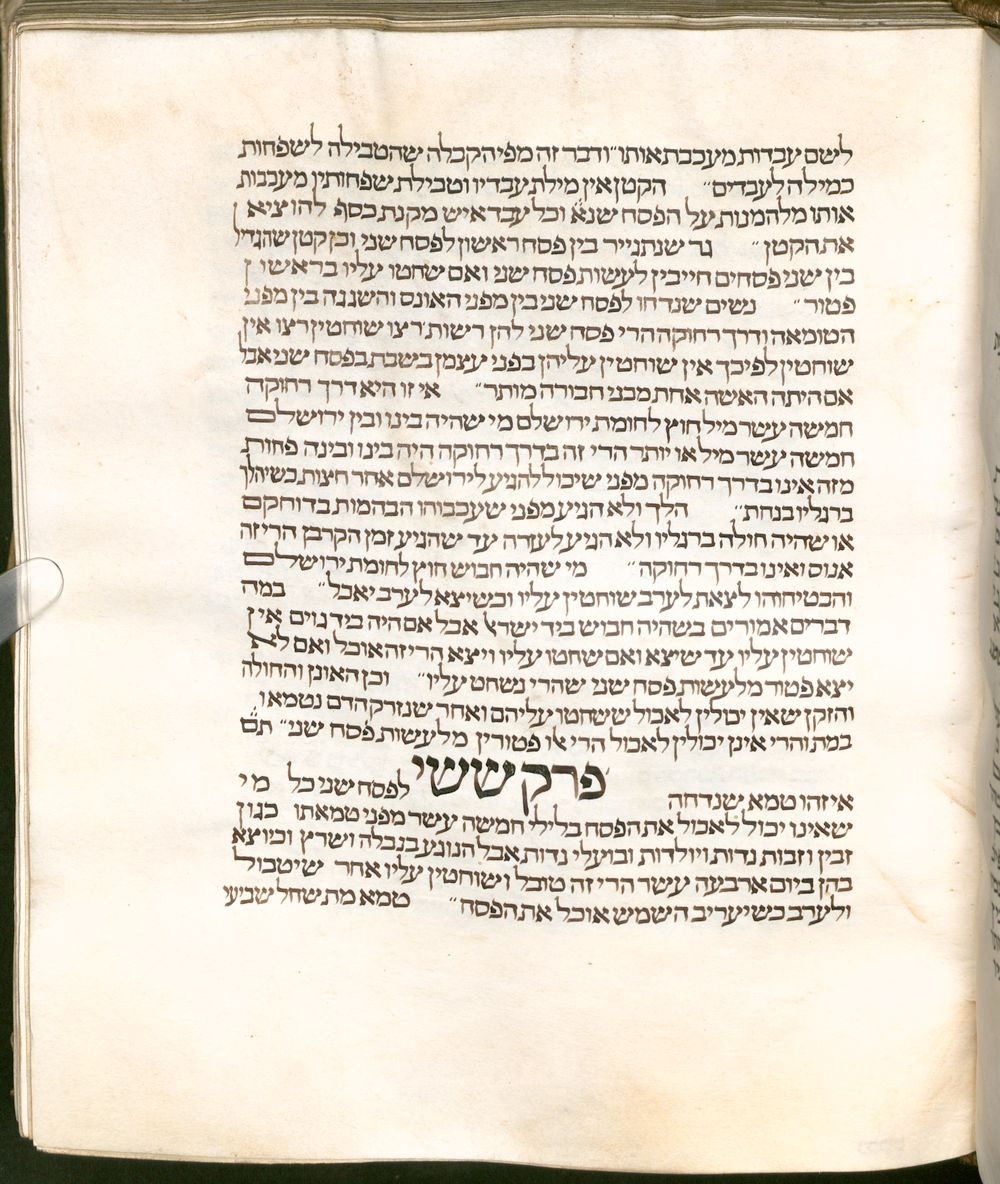 לשם עבדות מעכבת אותו״ ודבר זה מפי הקבלה שהטבילה לשפחות
כמילה לעבדים״ הקטן אין מילת עבדיו וטבילת שפחותיו מעכבות
אותו מלהמנות על הפסח שנא׳ וכל עבד איש מקנת כסף להוציא
את הקטן״ גר שנתגייר בין פסח ראשון לפסח שני וכן קטן שהגדיל
בין שני פסחים חייבין לעשות פסח שני ואם שחטו עליו בראשון
פטור״ נשים שנדחו לפסח שני בין מפני האונס והשגגה בין מפני
הטומאה ודרך רחוקה הרי פסח שני להן רישות רצו שוחטין רצו אין
שוחטין לפיכך אין שוחטין עליהן בפני עצמן בשבת בפסח שני אבל
אם היתה האשה אחת מבני חבורה מותר״ אי זו היא דרך רחוקה
חמשה עשר מיל חוץ לחומת ירושלם מי שהיה בינו ובין ירושלם
חמשה עשר מיל או יותר הרי זה בדרך רחוקה היה בינו ובינה פחות
מזה אינו בדרך רחוקה מפני שיכול להגיע לירושלם אחר חצות כשיהלך
ברגליו בנחת״ הלך ולא הגיע מפני שעכבוהו הבהמות בדוחקם
או שהיה חולה ברגליו ולא הגיע לעזרה עד שהגיע זמן הקרבן הרי זה
אנוס ואינו בדרך רחוקה״ מי שהיה חבוש חוץ לחומת ירושלם
והבטיחוהו לצאת לערב שוחטין עליו וכשיצא לערב יאכל״ במה
דברים אמורים בשהיה חבוש ביד ישראל אבל אם היה ביד גוים אין
שוחטין עליו עד שיצא ואם שחטו עליו ויצא הרי זה אוכל ואם לא
יצא פטור מלעשות פסח שני שהרי נשחט עליו״ וכן האונן והחולה
והזקן שאין יכולין לאכול ששחטו עליהם ואחר שנזרק הדם נטמאו
במת והרי אינן יכולין לאכול הרי אלו פטורין מלעשות פסח שני״ תם
פרק ששי
איזהו טמא שנדחה לפסח שני כל מי
שאינו יכול לאכול את הפסח בלילי חמשה עשר מפני טמאתו כגון
זבין וזבות נדות ויולדות ובועלי נדות אבל הנוגע בנבלה ושרץ וכיוצא
בהן ביום ארבעה עשר הרי זה טובל ושוחטין עליו אחר שיטבול
ולערב כשיעריב השמש אוכל את הפסח״ טמא מת שחל שביעי